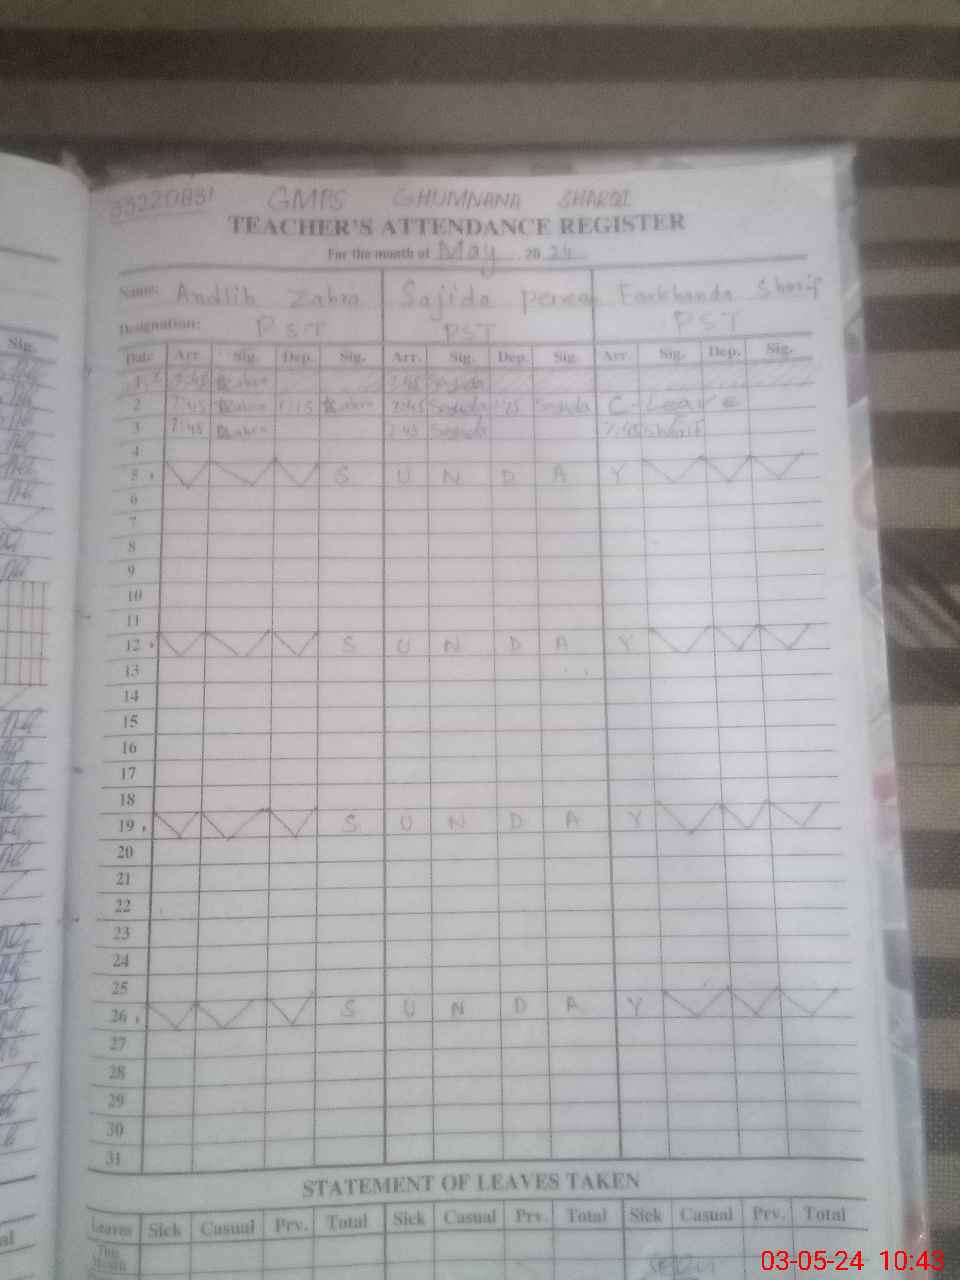 33220831 GMPS GHUMNANA SHARQI
TEACHER'S ATTENDANCE REGISTER
For the month of May 2024
Name: Andlib Zahra Sajida Farkhanda Sharif
Designation: PST PST PST
Date Arr. Sig. Dep. Sig. Arr. Sig. Dep. Sig. Arr. Sig. Dep. Sig.
1 7:45 Zahra 7:45 Sajida
2 7:45 Zahra 1:15 Zahra 7:45 Sajida Sajida C-Leave
3 7:45 Zahra 7:45 Sajida 7:45 Sharif
4
5 S U N D A Y
6
7
8
9
10
11
12 S U N D A Y
13
14
15
16
17
18
19 S U N D A Y
20
21
22
23
24
25
26 S U N D A Y
27
28
29
30
31
STATEMENT OF LEAVES TAKEN
Leaves Sick Casual Prv. Total Sick Casual Prv. Total Sick Casual Prv. Total
This Month
Sig.
03-05-24 10:43